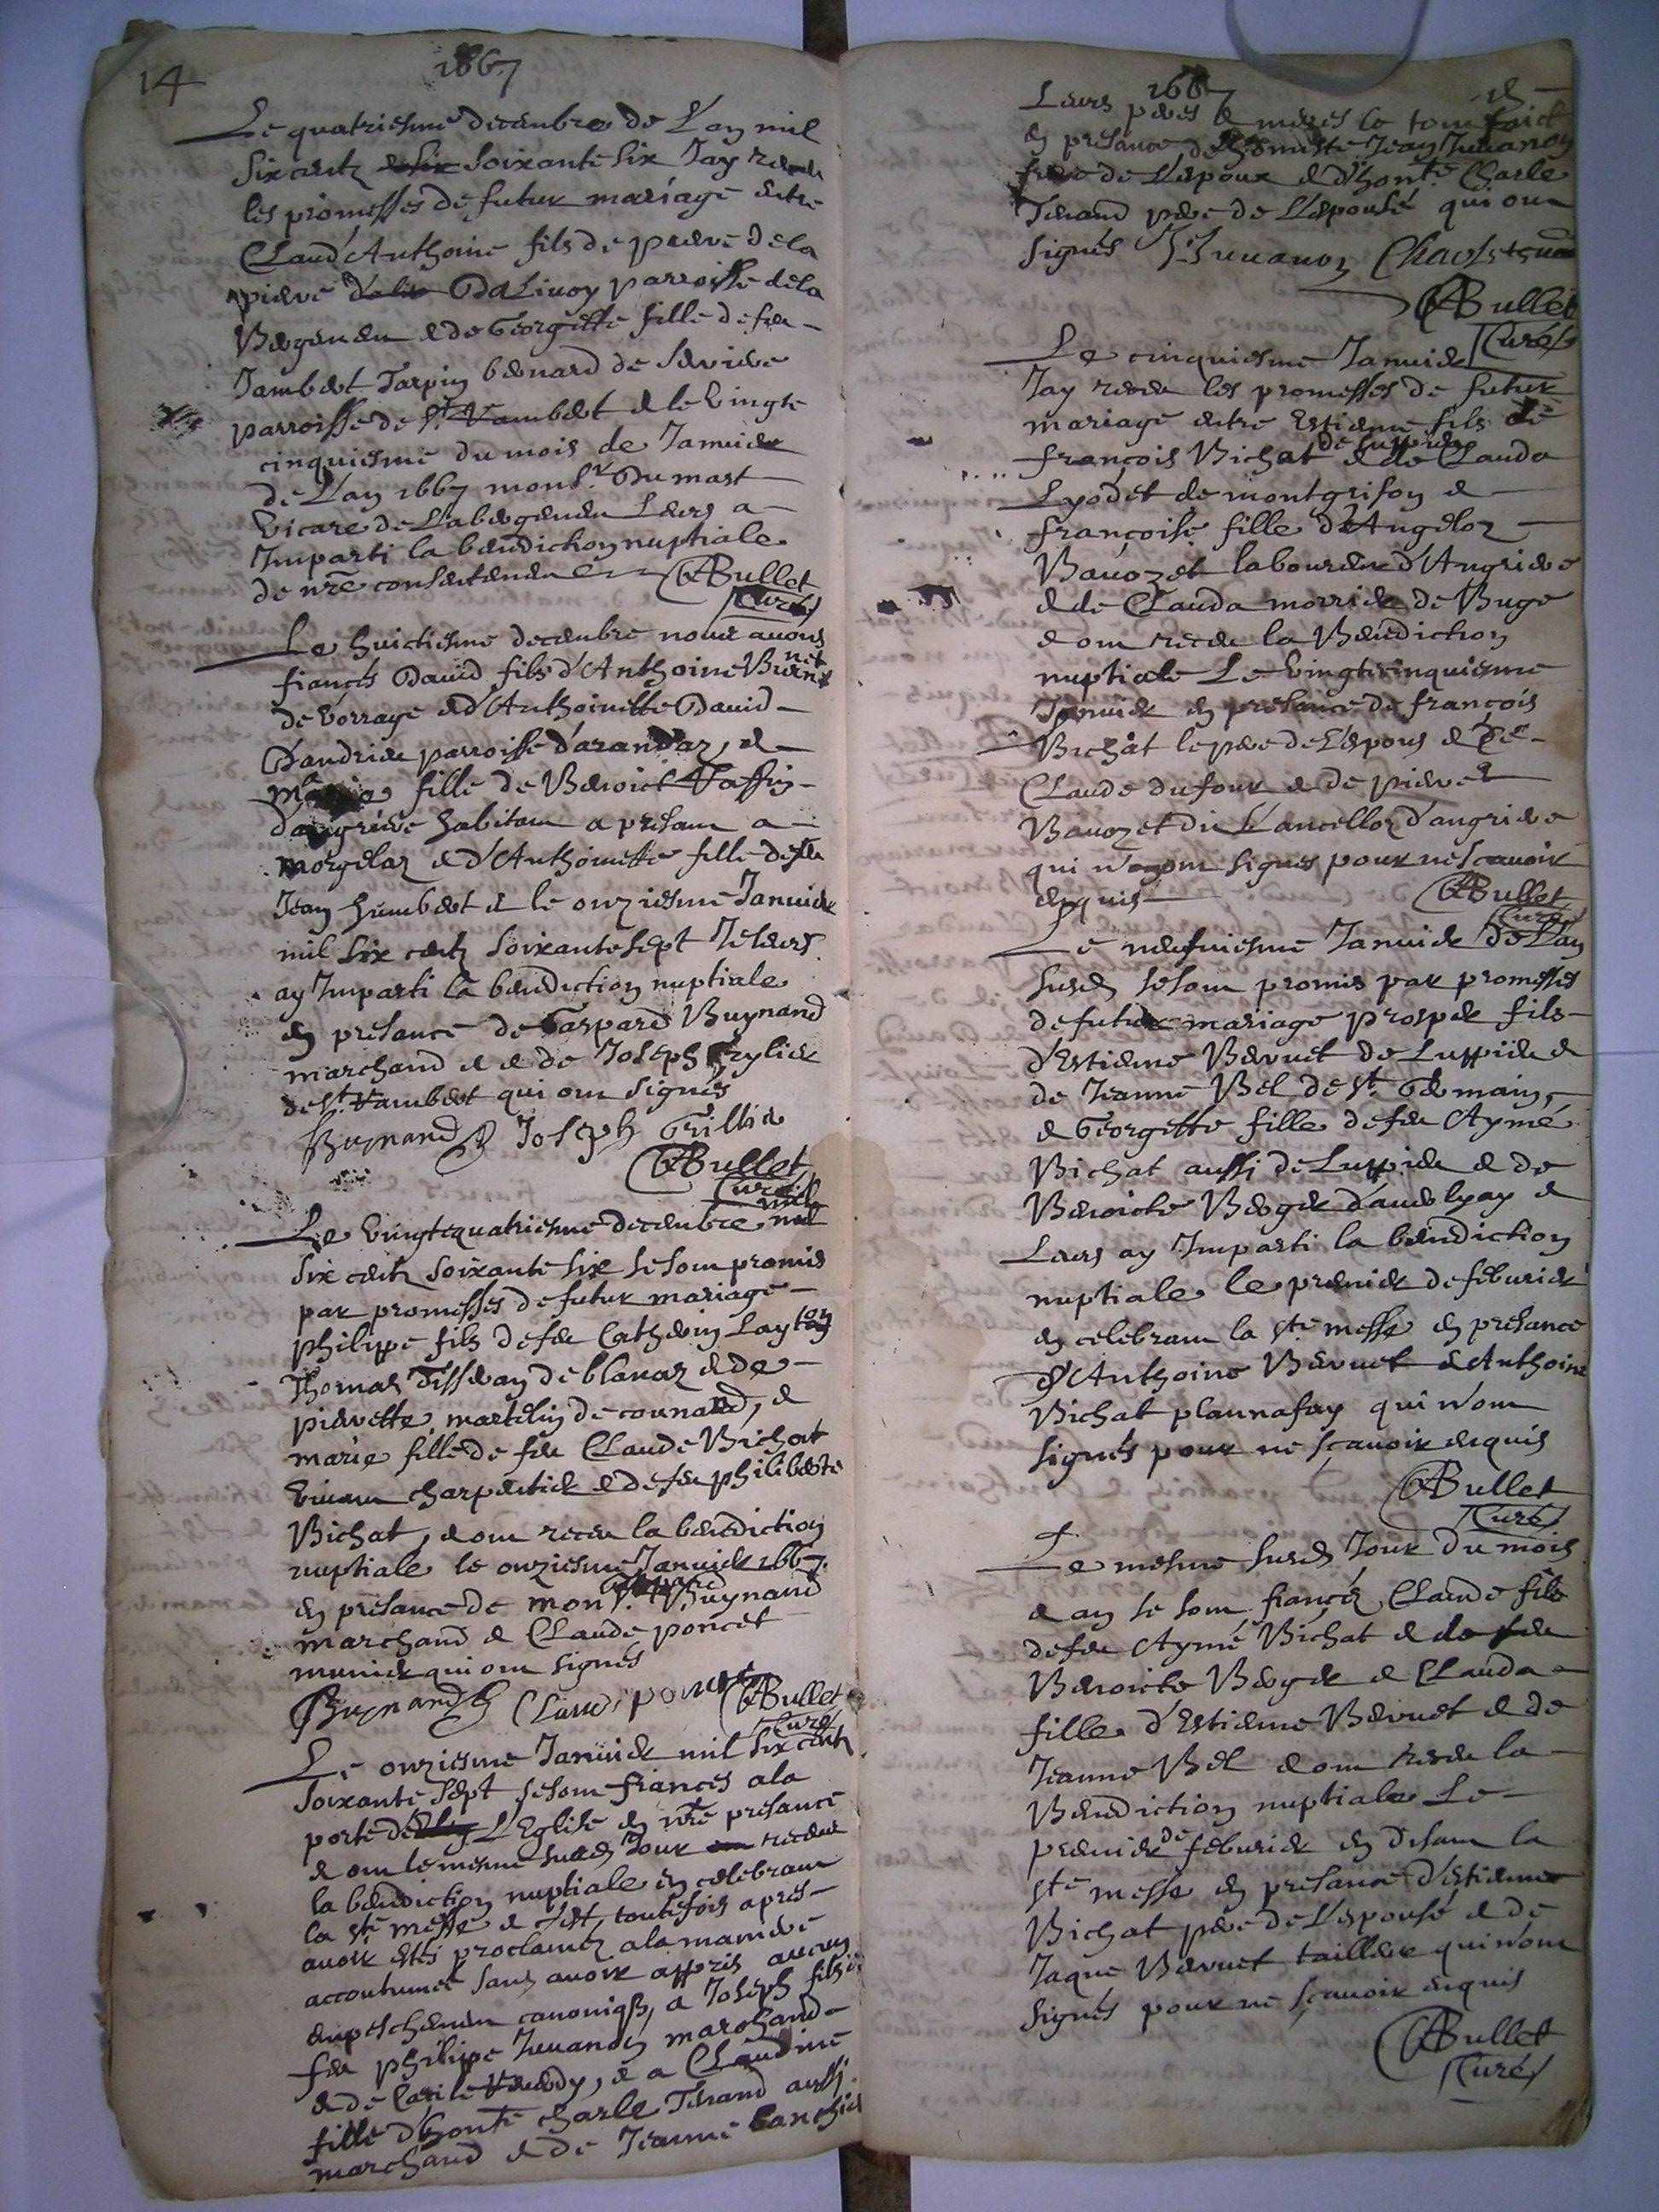 14
1667
Le quatriesme decembre de L'an mil
six centz soixante six Jay receu
les promesses de futur mariage entre
Claud'Anthoine fils de pierre de la
pierre Dalivoy parroisse de la
Bergement & de Georgette fille de feu
Jambert Tarpin benard de serriere
parroisse de St. Rambert & le vingte
cinquiesme du mois de Januier
de L'an 1667 mons.r Dumast
vicare de Labergement Leurs a
Imparti la benediction nuptiale
de nre consentement ABullet
Curé
Le huictiesme decembre nous auons
fiancés Dauid fils d'Anthoine
net
de vorrage & d'Anthoinette Dauid
Dandrieu parroisse d'arandaz, &
fille de Benoict Taffin
d'angriere habitant a presant a
morgelaz & d'Anthoinette fille de feu
Jean humbert & le onziesme Januier
mil six centz soixante sept Je Leurs
ay Imparti la benediction nuptiale
en presance de Gaspard Buynand
marchand & de Joseph Grylier
de St. Rambert qui ont signés
Buynand Joseph Grillie
ABullet
Curé
Le vingtequatriesme decembre mil
six centz soixante six se sont promis
par promesses de futur mariage
philippe fils de feu Catherin Layton
Thomas Tisseran de blanaz & de
pierrette martelin de counand, &
marie fille de feu Claude Bichat
vivant charpentier & de feu philiberte
Bichat, & ont receu la benediction
nuptiale le onziesme Januier 1667.
en presance de mons.r Buynand
marchand & Claude poncet
munier qui ont signés
Buynand Claude poncet ABullet
Curé
Le onziesme Januier mil six centz
soixante sept se sont fiancés a la
porte de L'Eglise en nre presance
& ont le mesme susd. Jour receu
la benediction nuptiale en celebrant
la ste messe & c'est toutefois apres
auoir esté proclamez a la maniere
accoutumée sans auoir appris aucun
empeschement canonique, a Joseph fils de
feu philippe Juuanon marchand
& de Cecile, & a Claudine
fille d'honte charle Terand aussi
marchand & de Jeanne
1667
Leurs peres & meres le tout faict
en presance de honneste Jean Juuanon
frere de L'espoux & d'honte. Charle
Terand pere de L'espousé qui ont
signés J. Juuanon Charle
ABullet
Curé
Le cinquiesme Januier
Jay receu les promesses de futur
mariage entre Estienne fils de
françois Bichat de Luppieu & de Clauda
Layodet de montgrifon &
françoise fille d'Angeloz
Bauozet laboureur d'Angriere
& de Clauda morrier de Buge
& ont receu la Benediction
nuptiale Le vingtecinquiesme
Januier en presance de françois
Bichat le pere de L'espous & de
Claude dufour & de pierre
Bauozet dit Lancelloz d'angriere
qui n'ont signés pour ne scauoir
enquis ABullet
Curé
Le neufuiesme Januier de L'an
susd. se sont promis par promesses
de futur mariage prosper fils
d'Estienne Beruet de Luppieu &
de Jeanne Bel de St. Germain,
& Georgette fille de feu Aymé
Bichat aussi de Luppieu & de
Benoicte Berger &
Leurs ay Imparti la benediction
nuptiale le premier de feburier
en celebrant la ste messe en presance
d'Anthoine Beruet & Anthoine
Bichat plaunafay qui n'ont
signés pour ne scauoir enquis
ABullet
Curé
Le mesme susd. Jour du mois
& an se sont fiancez Claude fils
de feu Aymé Bichat & de feu
Benoicte Berger & Clauda
fille d'Estienne Beruet & de
Jeanne Bel & ont receu la
Benediction nuptiale Le
premier de feburier en disant la
ste messe en presance d'Estienne
Bichat pere de L'espousé & de
Jaque Beruet tailleur qui n'ont
signés pour ne scauoir enquis
ABullet
Curé